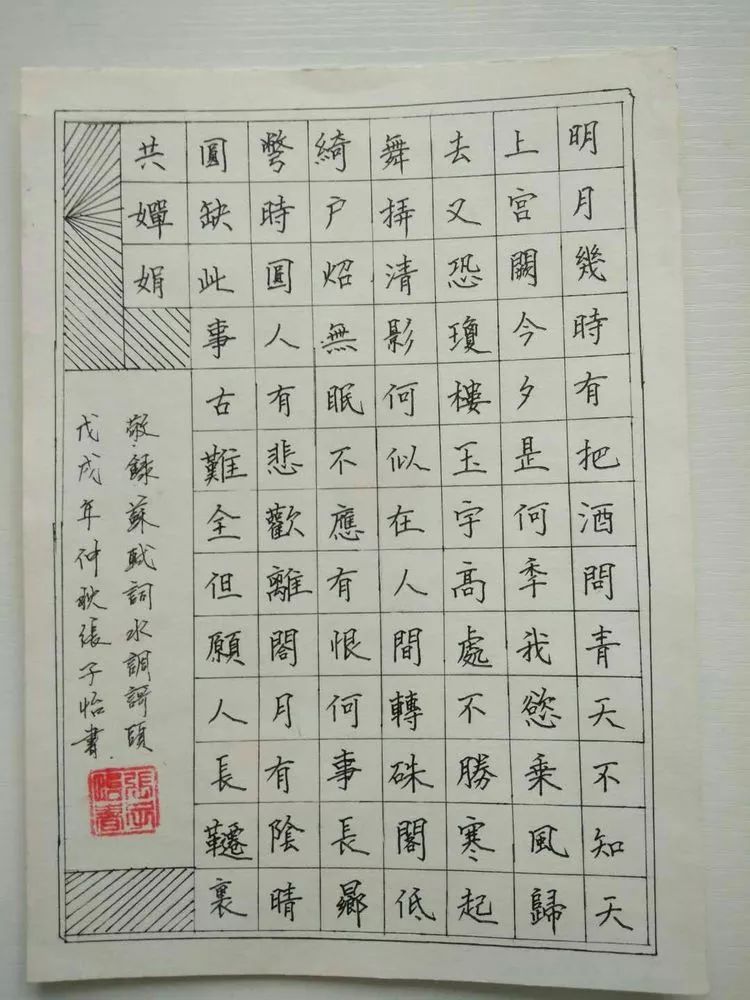 明月幾時有把酒問青天不知天
上宮闕今夕是何季我慾乘風歸
去又恐瓊樓玉宇高處不勝寒起
舞挵清影何似在人間轉硃閣低
綺户炤無眠不應有恨何事長曏
彆時圓人有悲歡離閤月有陰晴
圓缺此事古難全但願人長韆裏
共嬋娟
敬錄蘇軾詞水調謌頭
戊戌年仲秋張子怡書